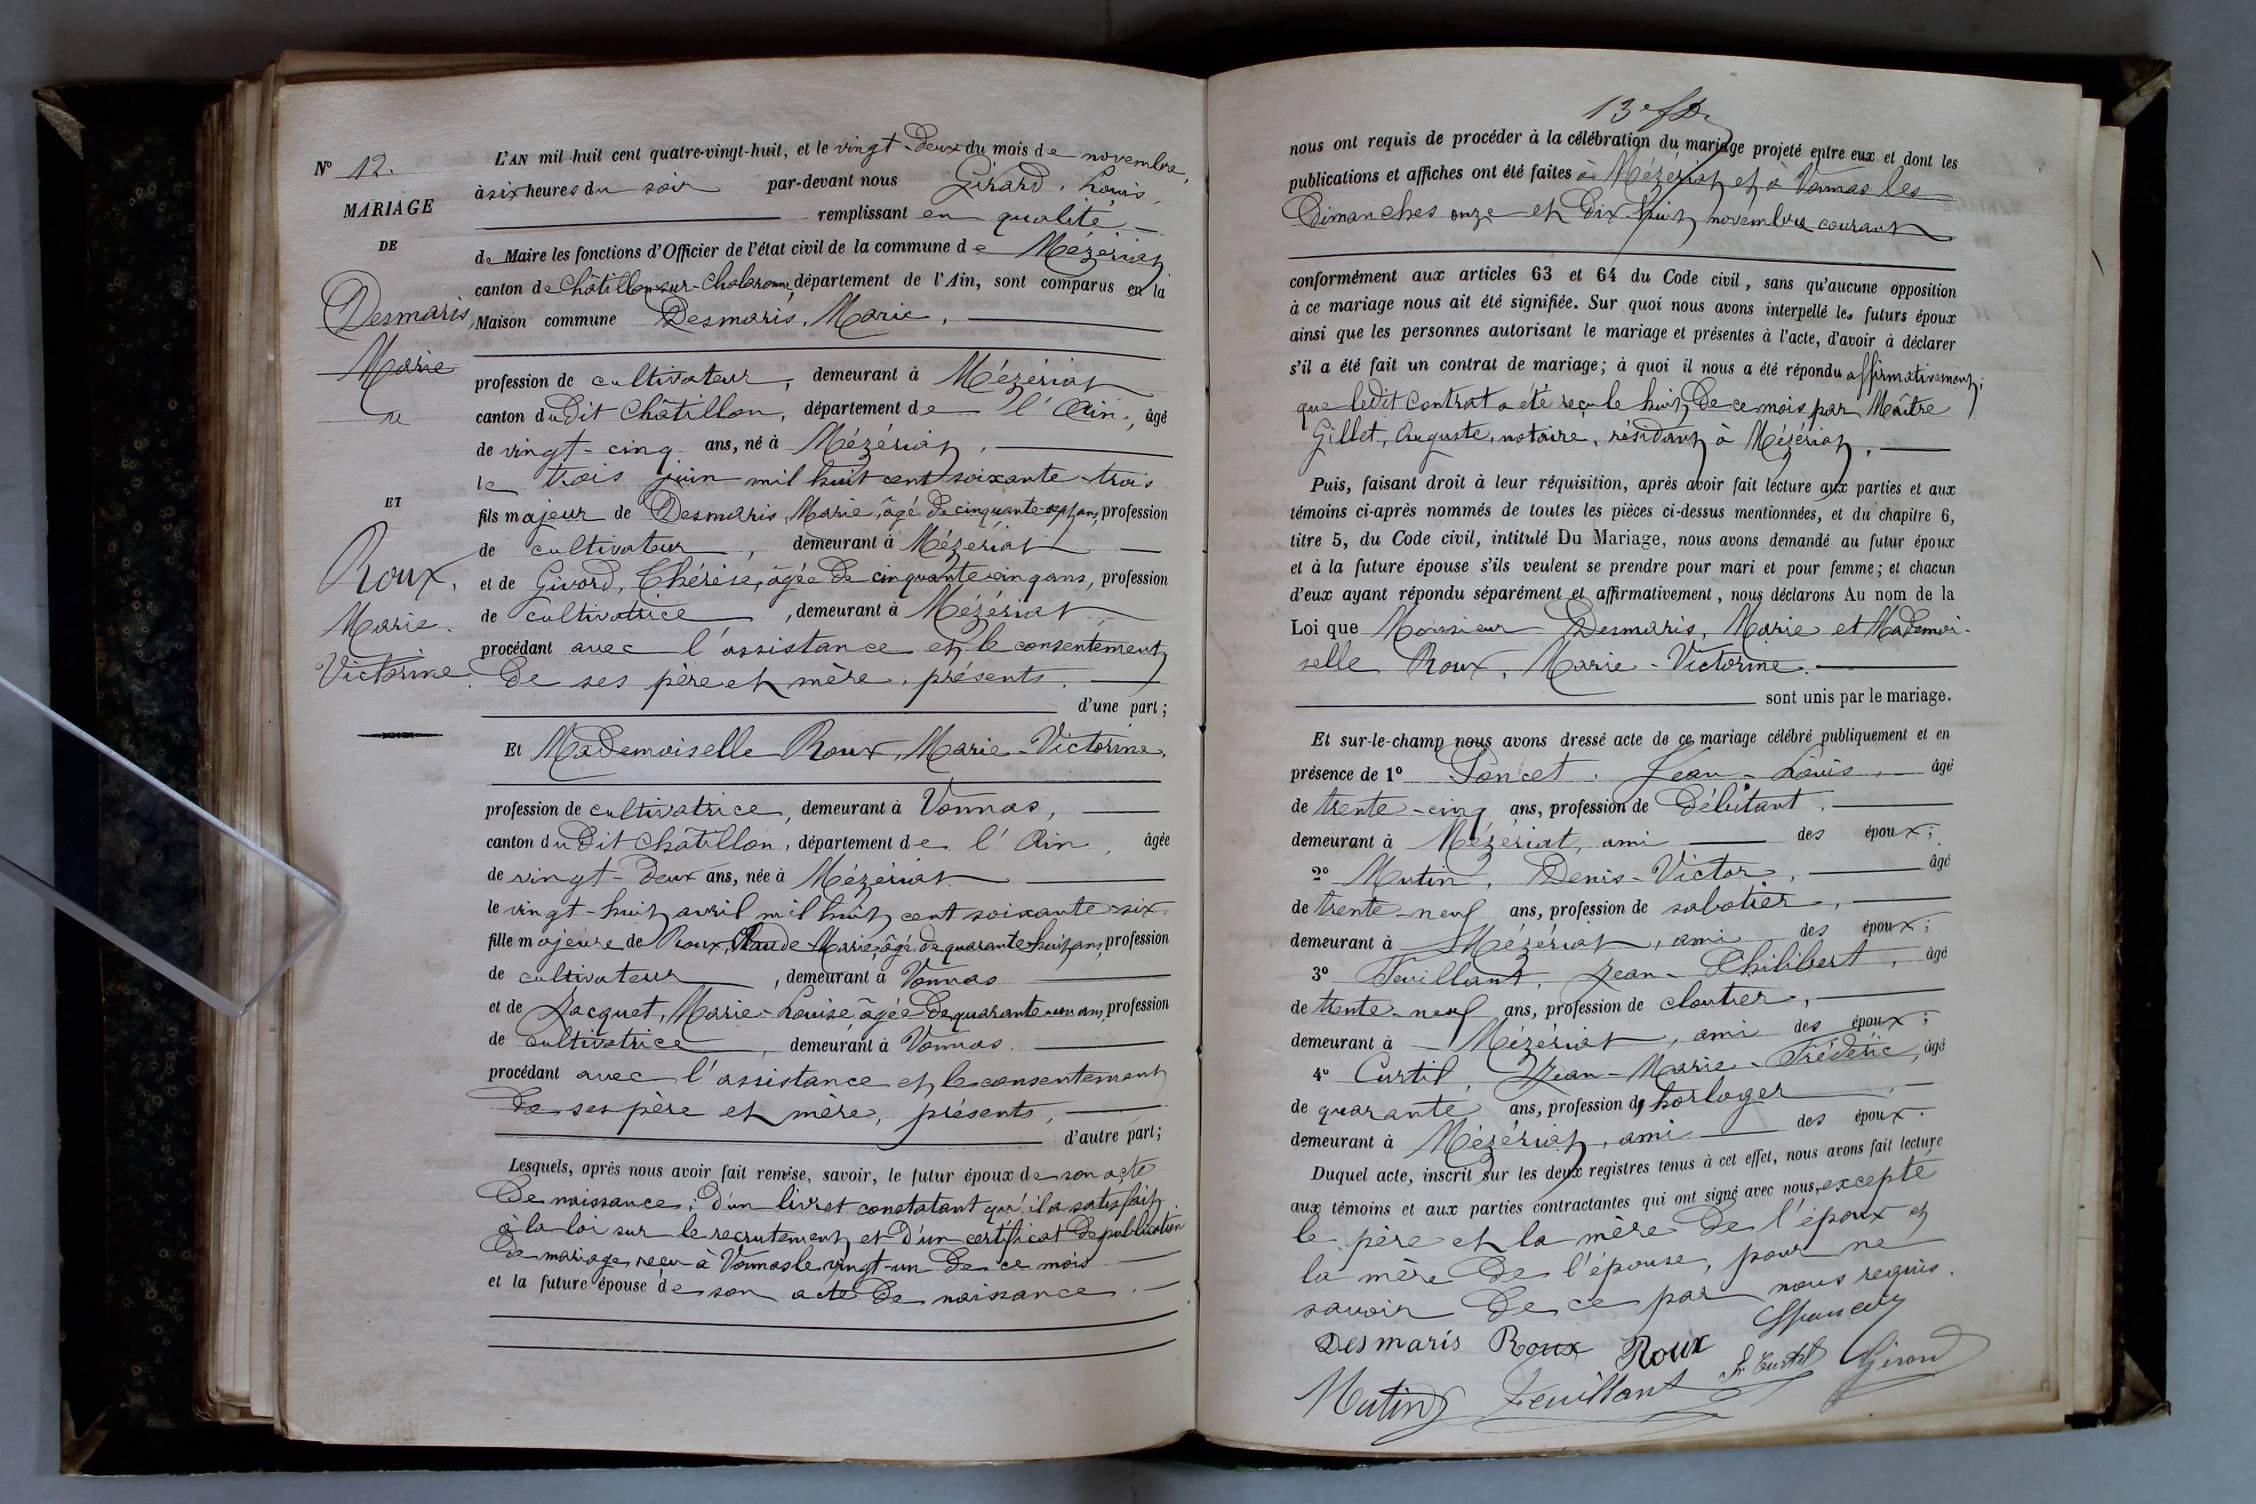 N° 12.
MARIAGE
DE
Desmaris,
Marie
ET
Roux,
Marie-
Victorine.
L'AN mil huit cent quatre-vingt-huit, et le vingt-deux du mois de novembre,
à six heures du soir par-devant nous Girard, Louis,
remplissant en qualité
de Maire les fonctions d'Officier de l'état civil de la commune de Mézériat,
canton de Châtillon-sur-Chalaronne, département de l'Ain, sont comparus en la
Maison commune Desmaris, Marie,
profession de cultivateur, demeurant à Mézériat
canton dudit Châtillon, département de l'Ain, âgé
de vingt-cinq ans, né à Mézériat,
le trois juin mil huit cent soixante-trois
fils majeur de Desmaris, Marie, âgé de cinquante-sept ans, profession
de cultivateur, demeurant à Mézériat
et de Givord, Thérèse, âgée de cinquante-cinq ans, profession
de cultivatrice, demeurant à Mézériat
procédant avec l'assistance et le consentement
de ses père et mère, présents,
d'une part;
Et Mademoiselle Roux, Marie-Victorine,
profession de cultivatrice, demeurant à Vonnas,
canton dudit Châtillon, département de l'Ain, âgée
de vingt-deux ans, née à Mézériat
le vingt-huit avril mil huit cent soixante-six
fille majeure de Roux, Claude-Marie, âgé de quarante-huit ans, profession
de cultivateur, demeurant à Vonnas
et de Jacquet, Marie-Louise âgée de quarante-un ans, profession
de cultivatrice, demeurant à Vonnas.
procédant avec l'assistance et le consentement
de ses père et mère, présents,
d'autre part;
Lesquels, après nous avoir fait remise, savoir, le futur époux de son acte
de naissance; d'un livret constatant qu'il a satisfait
à la loi sur le recrutement et d'un certificat de publication
de mariage reçu à Vonnas le vingt-un de ce mois
et la future épouse de son acte de naissance.
13e f
nous ont requis de procéder à la célébration du mariage projeté entre eux et dont les
publications et affiches ont été faites à Mézériat et à Vonnas les
Dimanches onze et dix-huit novembre courant
conformément aux articles 63 et 64 du Code civil, sans qu'aucune opposition
à ce mariage nous ait été signifiée. Sur quoi nous avons interpellé les futurs époux
ainsi que les personnes autorisant le mariage et présentes à l'acte, d'avoir à déclarer
s'il a été fait un contrat de mariage; à quoi il nous a été répondu affirmativement;
que ledit contrat a été reçu le huit de ce mois par Maître
Gillet, Auguste, notaire, résidant à Mézériat,
Puis, faisant droit à leur réquisition, après avoir fait lecture aux parties et aux
témoins ci-après nommés de toutes les pièces ci-dessus mentionnées, et du chapitre 6,
titre 5, du Code civil, intitulé Du Mariage, nous avons demandé au futur époux
et à la future épouse s'ils veulent se prendre pour mari et pour femme; et chacun
d'eux ayant répondu séparément et affirmativement, nous déclarons Au nom de la
Loi que Monsieur Desmaris, Marie et Mademoi-
selle Roux, Marie-Victorine.
sont unis par le mariage.
Et sur-le-champ nous avons dressé acte de ce mariage célébré publiquement et en
présence de 1° Poncet, Jean-Louis, âgé
de trente-cinq ans, profession de débitant,
demeurant à Mézériat, ami des époux;
2° Mutin, Denis-Victor, âgé
de trente-neuf ans, profession de sabotier,
demeurant à Mézériat, ami des époux;
3° Feuillant, Jean-Philibert, âgé
de trente-neuf ans, profession de cloutier,
demeurant à Mézériat, ami des époux;
4° Curtil, Jean-Marie-Frédéric, âgé
de quarante ans, profession de horloger
demeurant à Mézériat, ami des époux.
Duquel acte, inscrit sur les deux registres tenus à cet effet, nous avons fait lecture
aux témoins et aux parties contractantes qui ont signé avec nous, excepté
le père et la mère de l'époux et
la mère de l'épouse, pour ne
savoir de ce par nous requis.
Desmaris Roux Roux
F. Curtil Girard
Mutin Feuillant